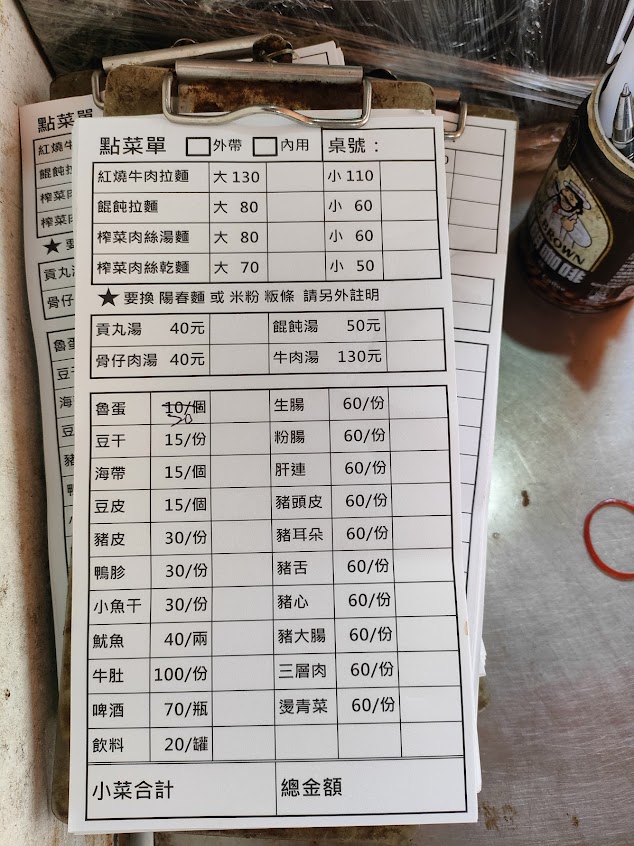 點菜單 □外帶 □內用 桌號：
紅燒牛肉拉麵 大 130 小 110
餛飩拉麵 大 80 小 60
榨菜肉絲湯麵 大 80 小 60
榨菜肉絲乾麵 大 70 小 50
★要換 陽春麵 或 米粉 粄條 請另外註明
貢丸湯 40元 餛飩湯 50元
骨仔肉湯 40元 牛肉湯 130元
魯蛋 10/個 生腸 60/份
豆干 15/份 粉腸 60/份
海帶 15/個 肝連 60/份
豆皮 15/個 豬頭皮 60/份
豬皮 30/份 豬耳朵 60/份
鴨胗 30/份 豬舌 60/份
小魚干 30/份 豬心 60/份
魷魚 40/兩 豬大腸 60/份
牛肚 100/份 三層肉 60/份
啤酒 70/瓶 燙青菜 60/份
飲料 20/罐
小菜合計 總金額
點菜
紅燒牛
餛飩拉
榨菜肉
榨菜肉
★要
貢丸
骨仔
魯蛋
豆干
海
豆
豬
鴨
BROWN